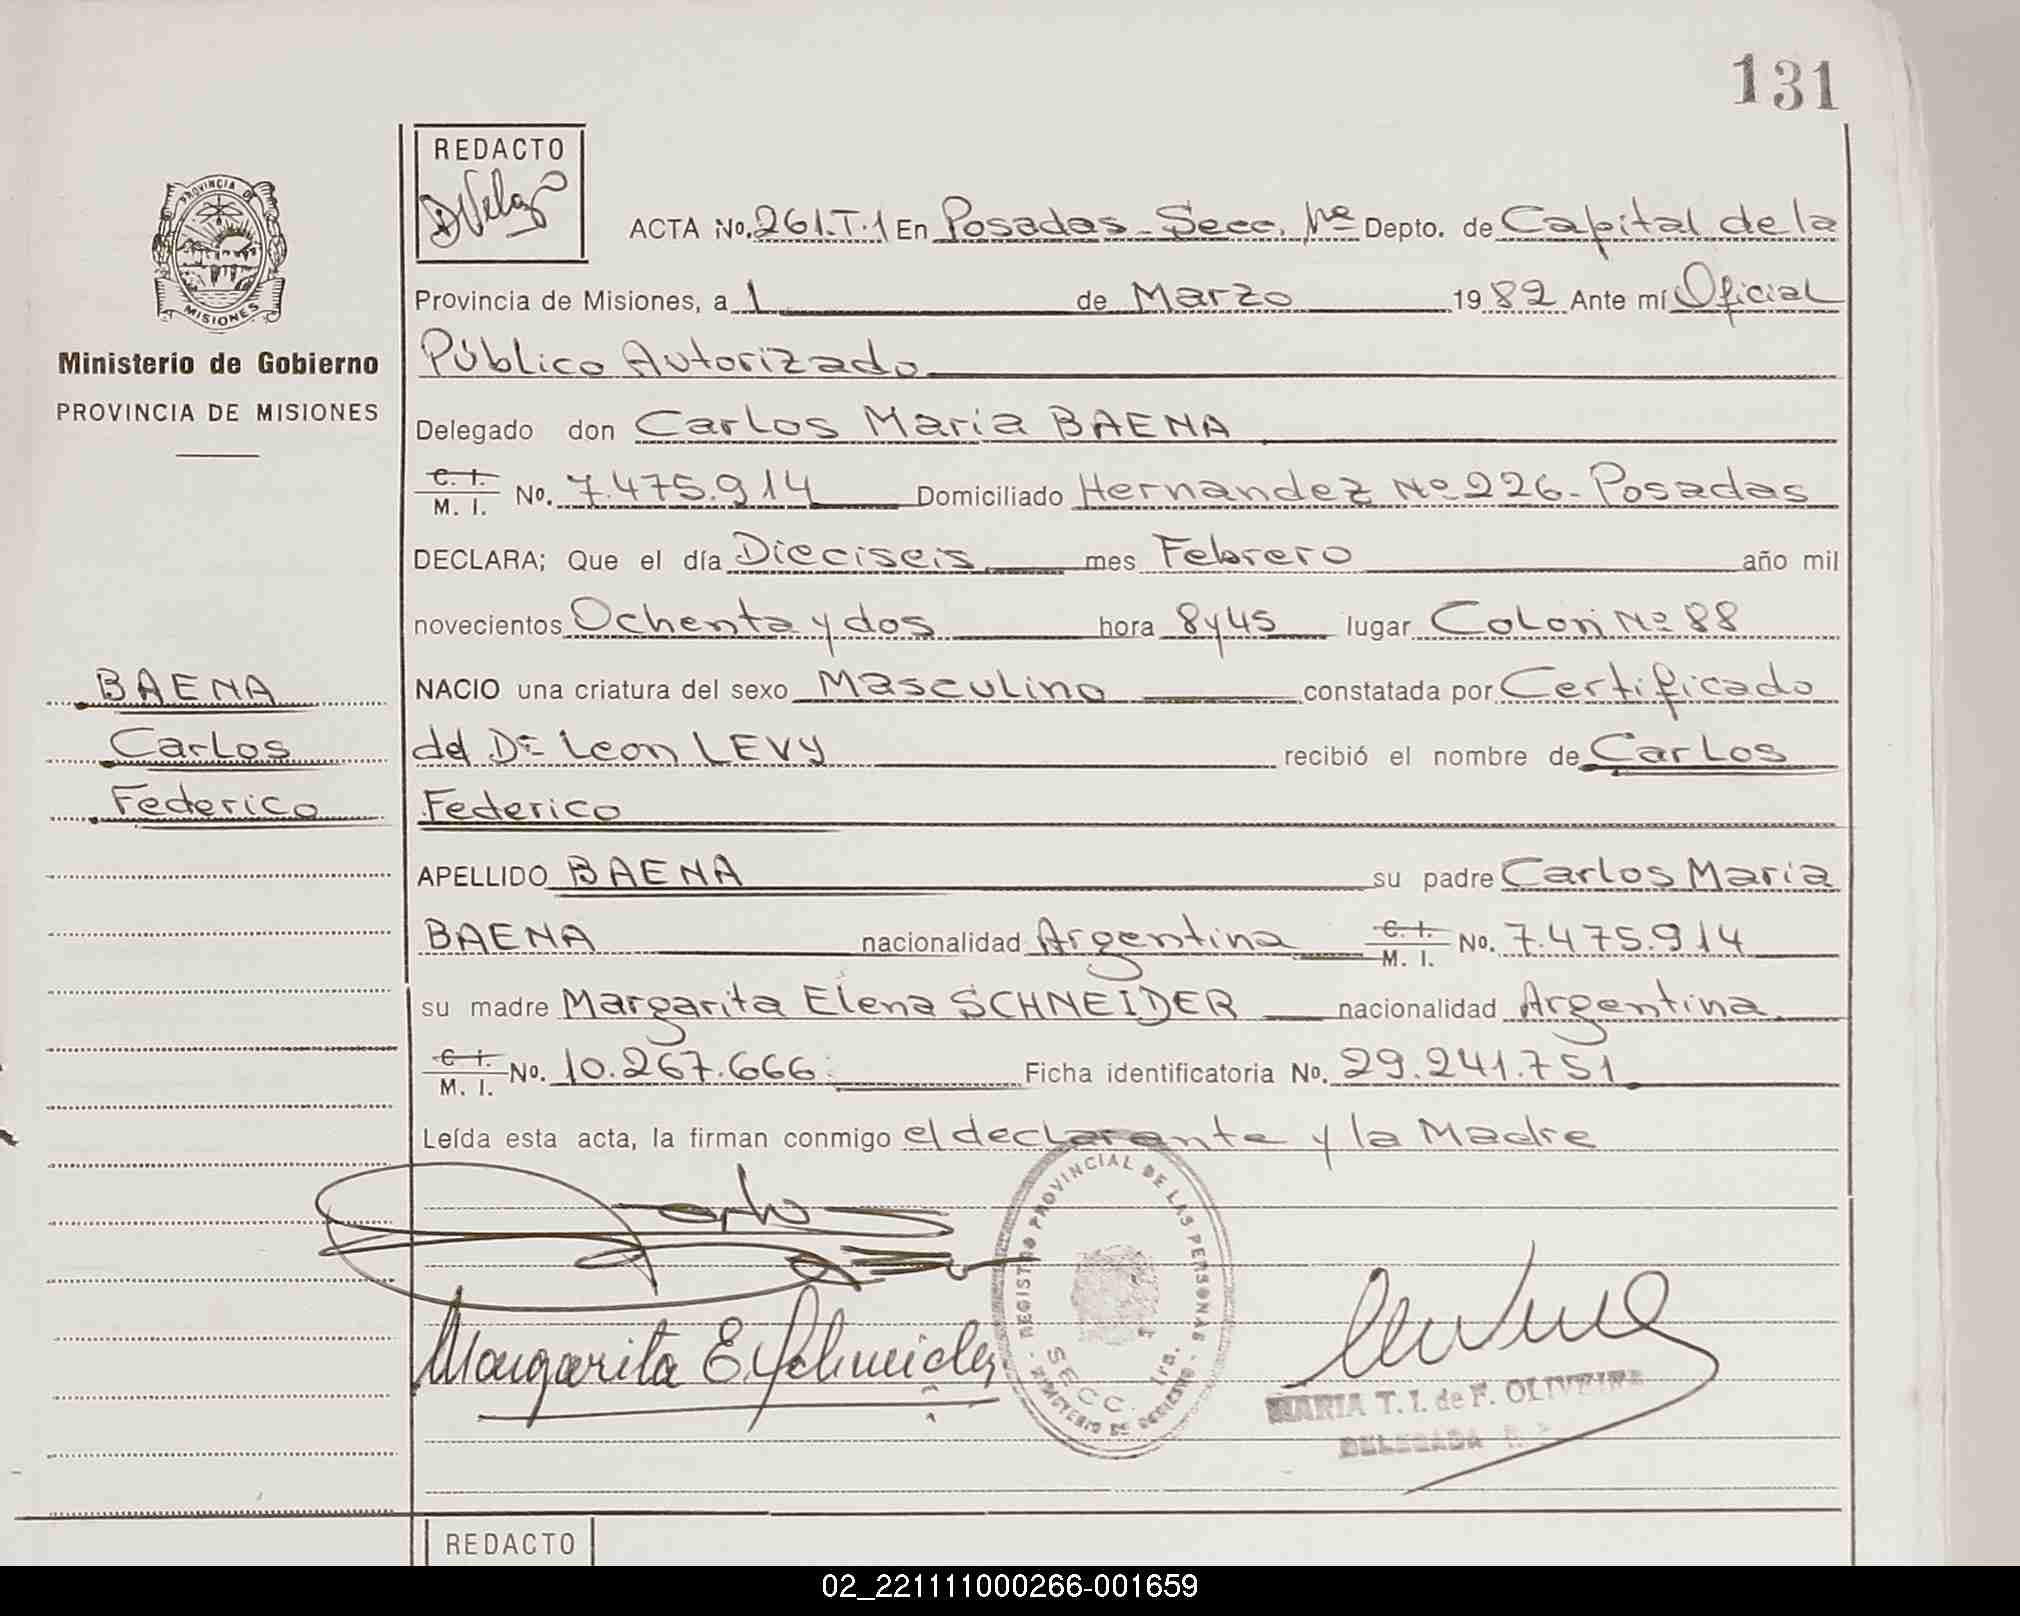 131
REDACTO
PROVINCIA DE
MISIONES
Ministerio de Gobierno
PROVINCIA DE MISIONES
ACTA No. 261.T.1 En Posadas - Secc. 1ra Depto. de Capital de la
Provincia de Misiones, a 1 de Marzo 1982 Ante mí Oficial
Público Autorizado
Delegado don Carlos Maria BAENA
C. I.
M. I. No. 7.475.914 Domiciliado Hernandez Nº 226 - Posadas
DECLARA; Que el día Dieciseis mes Febrero año mil
novecientos Ochenta y dos hora 8y45 lugar Colon Nº 88
BAENA
NACIO una criatura del sexo Masculino constatada por Certificado
Carlos
del Dr Leon LEVY recibió el nombre de Carlos
Federico
Federico
APELLIDO BAENA su padre Carlos Maria
BAENA nacionalidad Argentina C. I. M. I. No. 7.475.914
su madre Margarita Elena SCHNEIDER nacionalidad Argentina
C. I.
M. I. No. 10.267.666 Ficha identificatoria No. 29.241.751
Leída esta acta, la firman conmigo el declarante y la Madre
REGISTRO PROVINCIAL DE LAS PERSONAS
SECC. 1ra.
MINISTERIO DE GOBIERNO
Margarita E. Schneider
MARIA T. I. de F. OLIVEIRA
DELEGADA
REDACTO
02_221111000266-001659